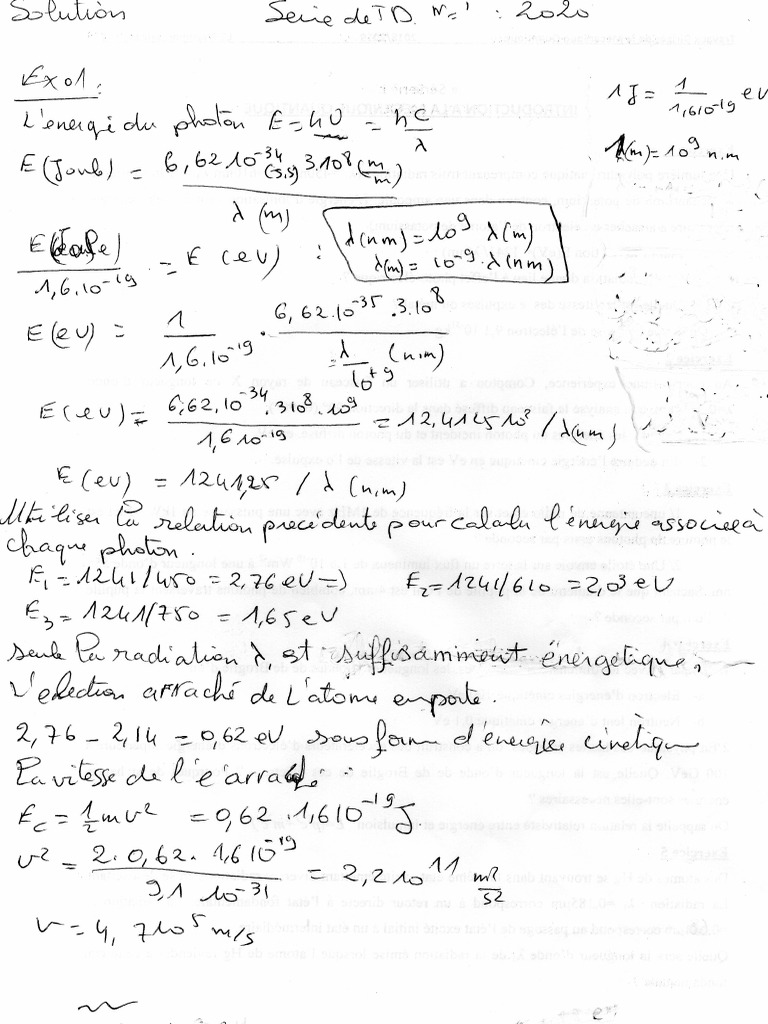 Solution Série de TD. N°=1 : 2020
Exo1:
1J = 1/1,6 10⁻¹⁹ eV
L'énergie du photon E = hν = hc/λ
1(m) = 10⁹ n.m
E(Joule) = 6,62.10⁻³⁴ (J.s) 3.10⁸ (m/s) / λ(m)
E(Joule)/1,6.10⁻¹⁹ = E(eV) :
λ(nm) = 10⁹ λ(m)
λ(m) = 10⁻⁹. λ(nm)
E(eV) = 1/1,6.10⁻¹⁹ . 6,62.10⁻³⁵ .3.10⁸ / λ/10⁺⁹ (n.m)
E(eV) = 6,62.10⁻³⁴ .3 10⁸ .10⁹ / 1,6 10⁻¹⁹ = 12,4125 10³ / λ(nm)
E(eV) = 1241,25 / λ (n.m)
Utiliser la relation precédente pour calculer l'énergie associée à
chaque photon.
E₁ = 1241/450 = 2,76 eV ⇒ E₂ = 1241/610 = 2,03 eV
E₃ = 1241/750 = 1,65 eV
seule la radiation λ, est suffisamment énergétique,
L'electron arraché de L'atome emporte.
2,76 - 2,14 = 0,62 eV sous forme d'énergie cinétique
La vitesse de l'é arraché :
Ec = 1/2 mv² = 0,62 . 1,6 10⁻¹⁹ J.
v² = 2. 0,62. 1,6 10⁻¹⁹ / 9,1 10⁻³¹ = 2,2 10¹¹ m²/s²
v = 4,7 10⁵ m/s